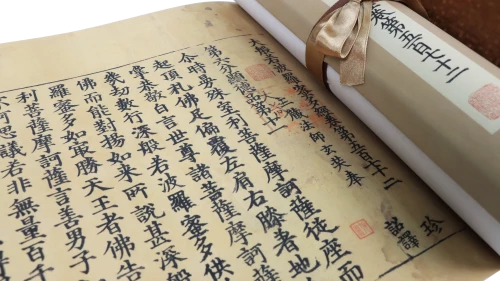 卷第五百七十二
大般若波羅蜜多經卷第五百七十二 珍
三藏法師玄奘奉 詔譯
第六分顯德品第十一
尒時曼殊室利菩薩摩訶薩從座而
起頂礼佛足偏覆左肩右膝著地
掌恭敬白言世尊諸菩薩摩訶薩
幾劫數行深般若波羅蜜多供
佛而能對揚如來所說甚深般
羅蜜多如軍勝天王者佛告
利菩薩摩訶薩言善男子
可思議若非無量百千